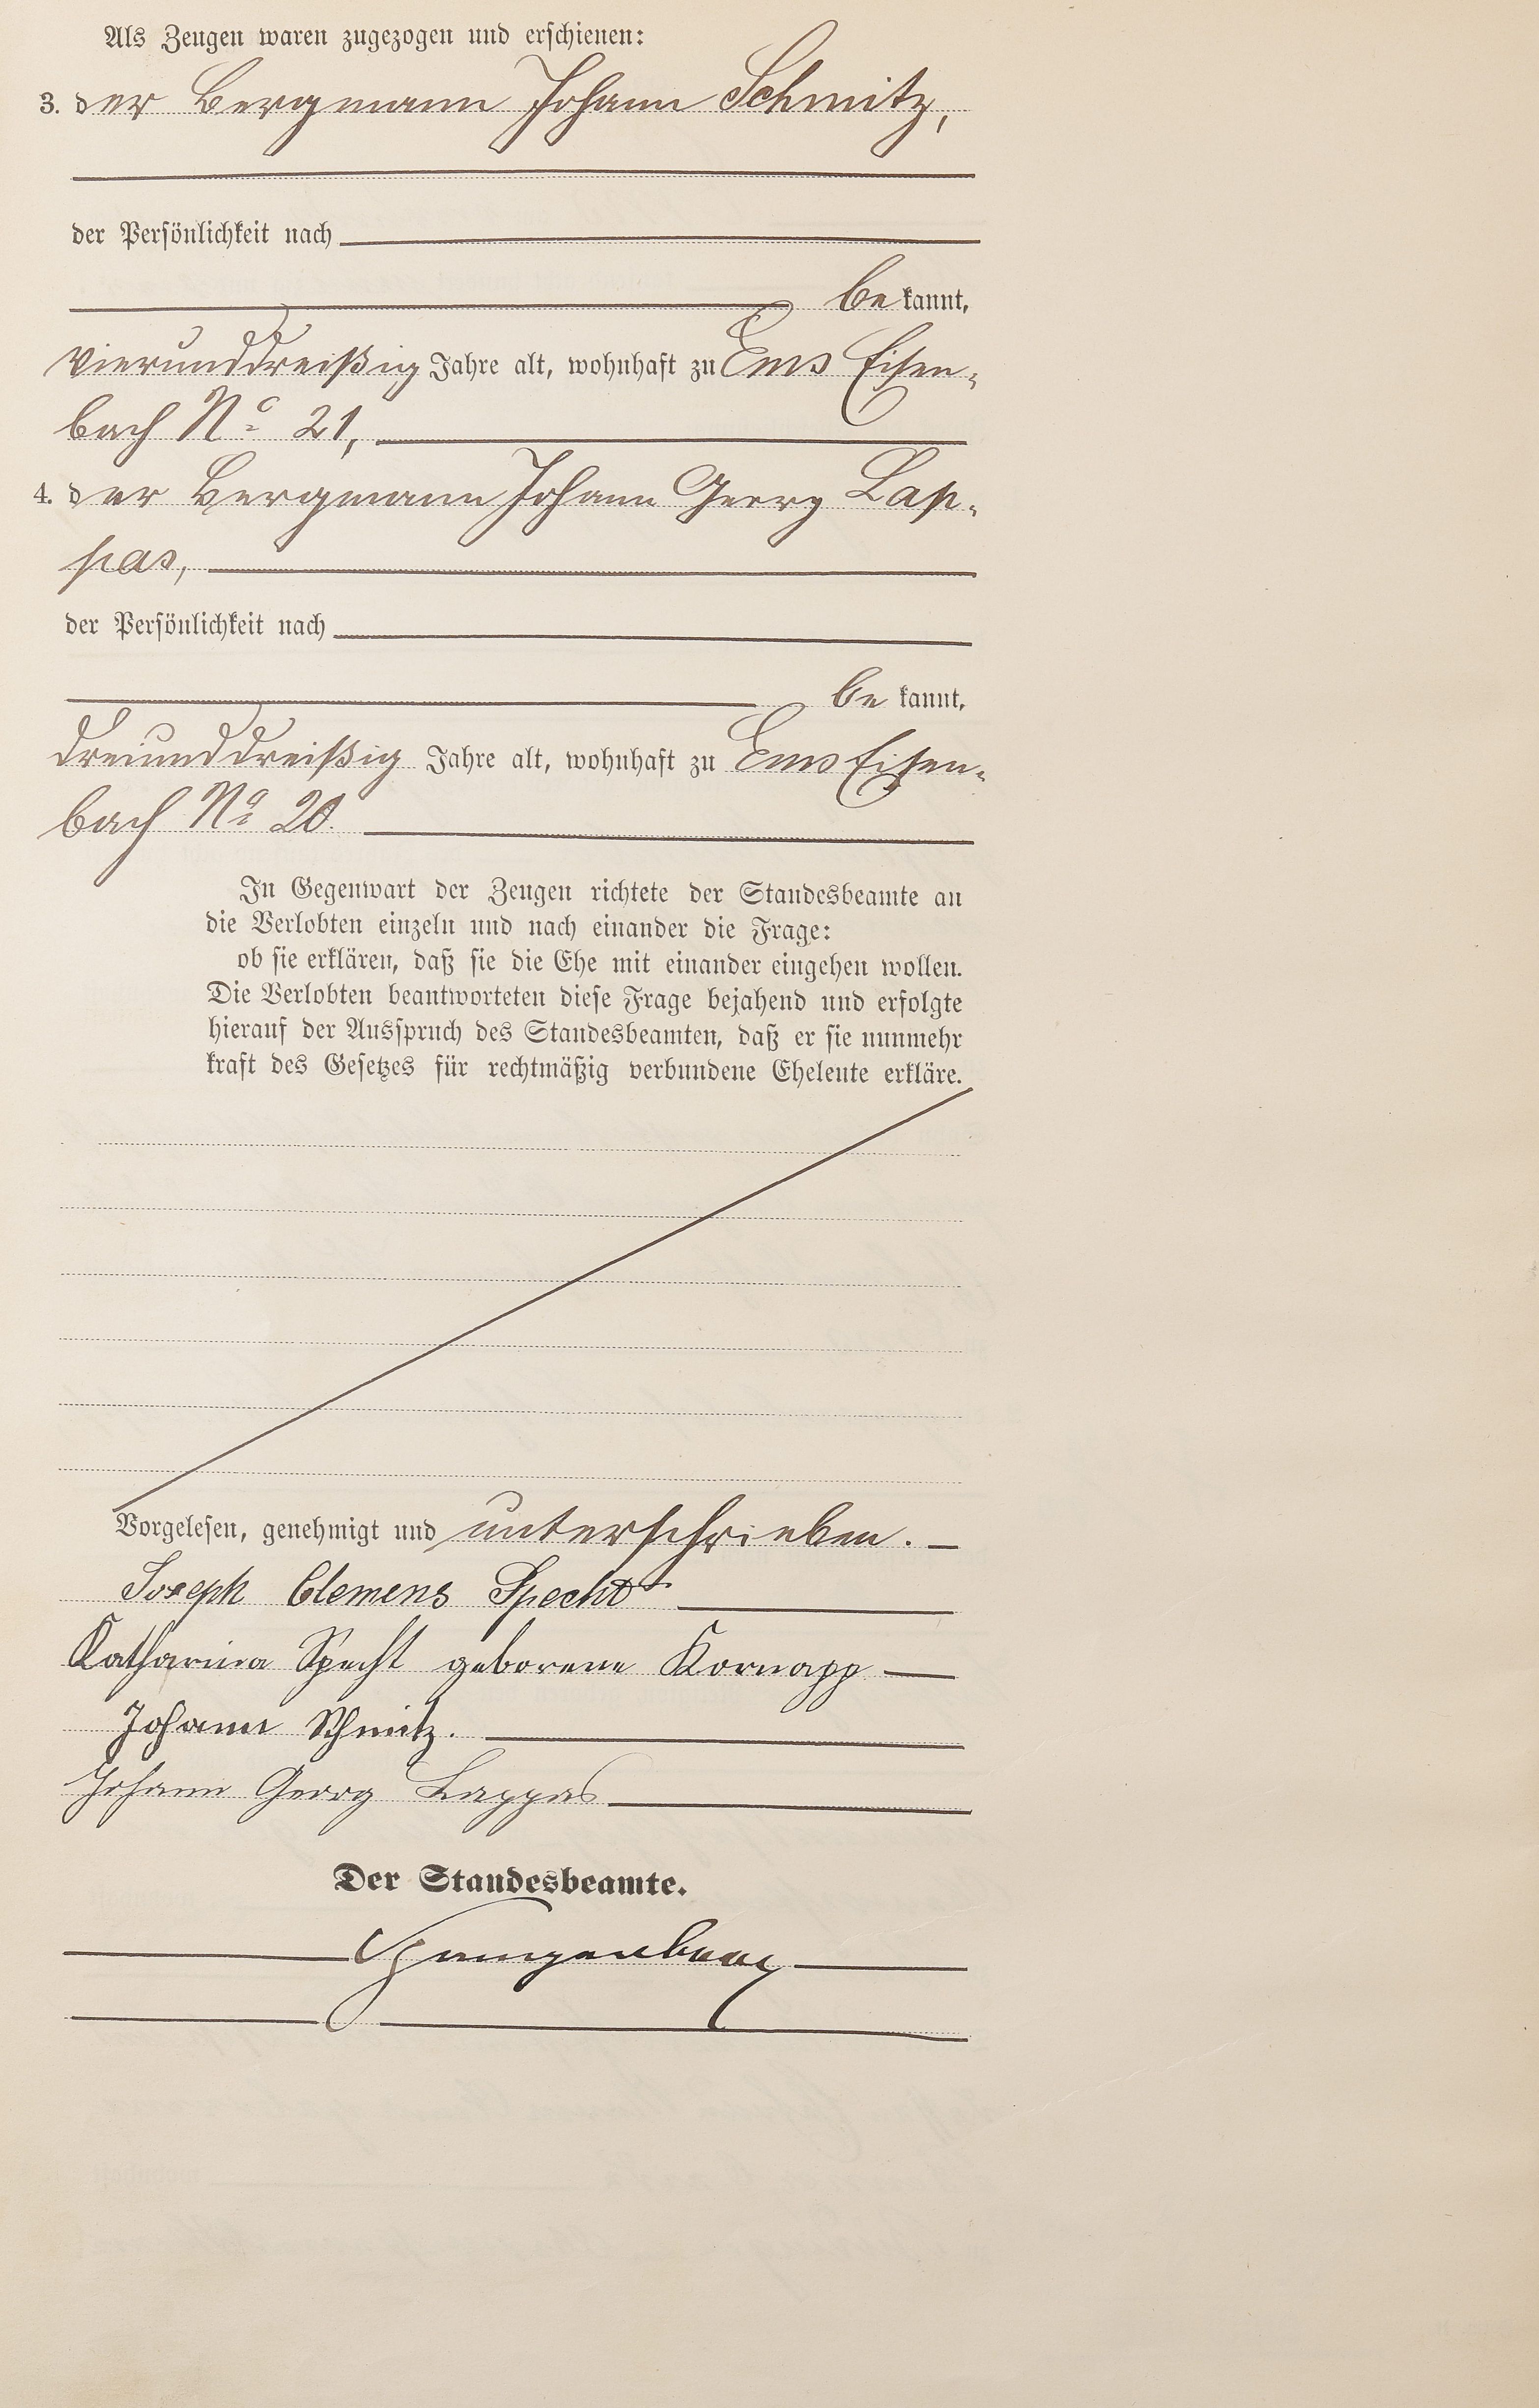 Als Zeugen waren zugezogen und erschienen:
3. der Bergmann Johann Schmitz,
der Persönlichkeit nach
be kannt,
vierunddreißig Jahre alt, wohnhaft zu Ems Eisen-
bach No 21,
4. der Bergmann Johann Georg Lap-
pas,
der Persönlichkeit nach
be kannt,
dreiunddreißig Jahre alt, wohnhaft zu Ems Eisen-
bach No 20.
In Gegenwart der Zeugen richtete der Standesbeamte an
die Verlobten einzeln und nach einander die Frage:
ob sie erklären, daß sie die Ehe mit einander eingehen wollen.
Die Verlobten beantworteten diese Frage bejahend und erfolgte
hierauf der Ausspruch des Standesbeamten, daß er sie nunmehr
kraft des Gesetzes für rechtmäßig verbundene Eheleute erkläre.
Vorgelesen, genehmigt und unterschrieben.
Joseph Clemens Specht
Katharina Specht geborene Kornapp
Johann Schmitz.
Johann Georg Lappas
Der Standesbeamte.
Spangenberg